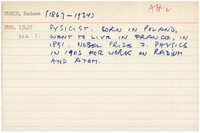 CURIE, Madame (1867-1934)
PHYSICIST. BORN IN POLAND,
WANT TO LIVE IN FRANCE, IN
1891. NOBEL PRIZE 7. PHYSICS
IN 1903 FOR WORK ON RADIUM
AND ATOM.